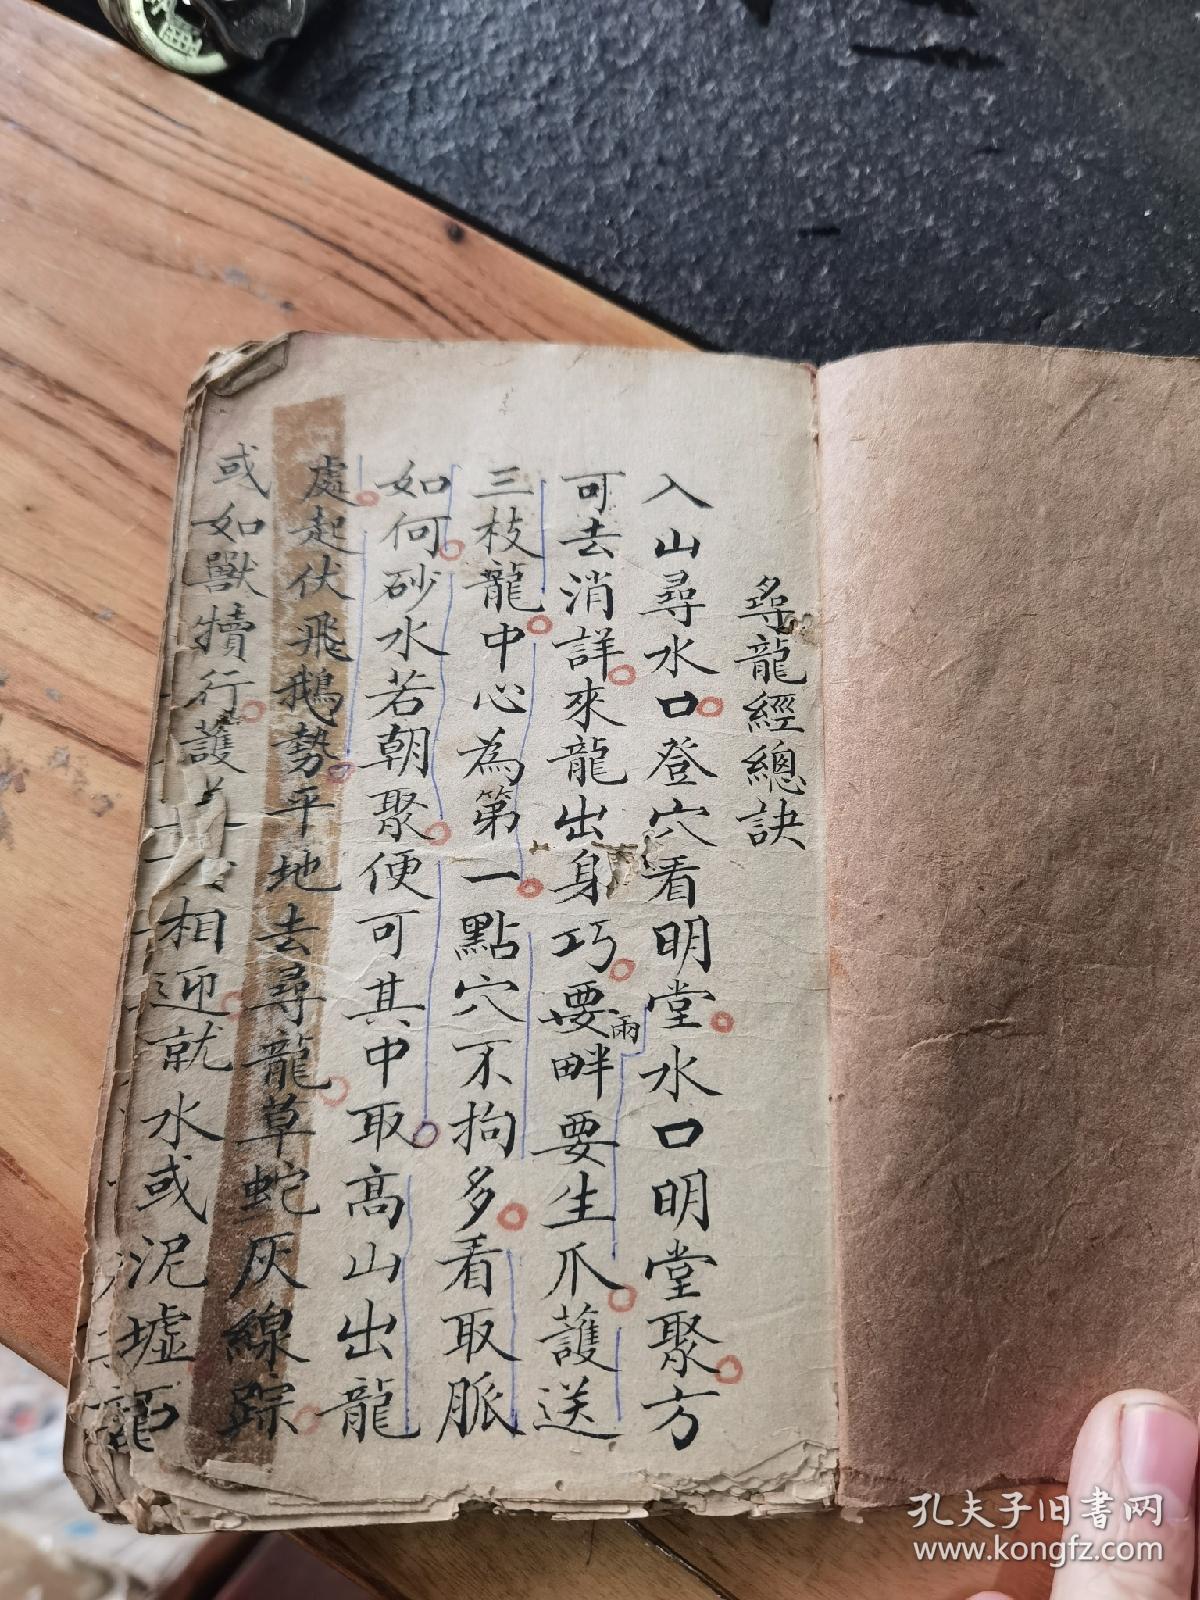 尋龍經總訣
入山尋水口登穴看明堂水口明堂聚方
可去消詳來龍出身巧要兩畔要生爪護送
三枝龍中心為第一點穴不拘多看取脈
如何砂水若朝聚便可其中取高山出龍
處起伏飛鵝勢平地去尋龍草蛇灰線踪
或如獸犢行護相迎就水或泥墟
孔夫子旧书网
www.kongfz.com